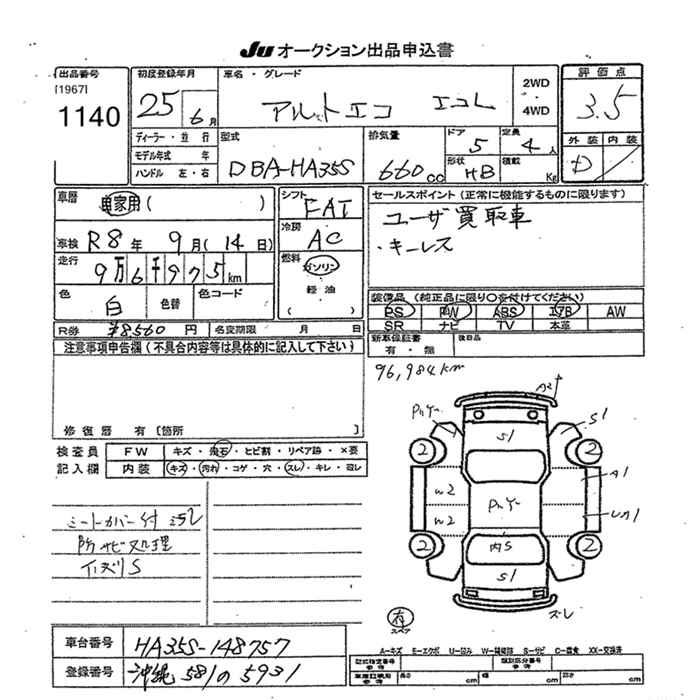 JU オークション出品申込書
出品番号
[1967]
1140
初度登録年月
25 6月
ディーラー・並行
モデル年式 年
ハンドル 左・右
車名・グレード
アルトエコ エコL
2WD
4WD
評価点
3.5
外装 内装
D
型式
DBA-HA35S
排気量
660cc
ドア
5
定員
4人
形状
HB
積載
Kg
車歴
自家用( )
車検 R8年 9月(14日)
走行
9万6千975km
色
白
色替
色コード
R券 ¥8560円
名変期限 月 日
シフト
FAT
冷房
AC
燃料
ガソリン
軽油
( )
セールスポイント(正常に機能するものに限ります)
ユーザ買取車
・キーレス
装備品(純正品に限り○を付けてください)
PS PW ABS エアB AW
SR ナビ TV 本革
新車保証書
有・無
後日品
注意事項申告欄(不具合内容等は具体的に記入して下さい)
修復歴 有[箇所 ]
96,984km
検査員
記入欄
FW キズ・飛石・ヒビ割・リペア跡・×要
内装 キズ・汚れ・コゲ・穴・スレ・キレ・凹レ
シートカバー付
防サビ処理
S
A2
S1
S1
2
2
A1
W2
W2
内S
S1
2
2
有
スペア
A-キズ E-エクボ U-凹み W-補修跡 S-サビ C-腐食 XX-交換済
車台番号 HA35S-148757
登録番号 沖縄 581 の 5931
型式指定番号
類別区分番号
長さ cm 幅 cm 高さ cm